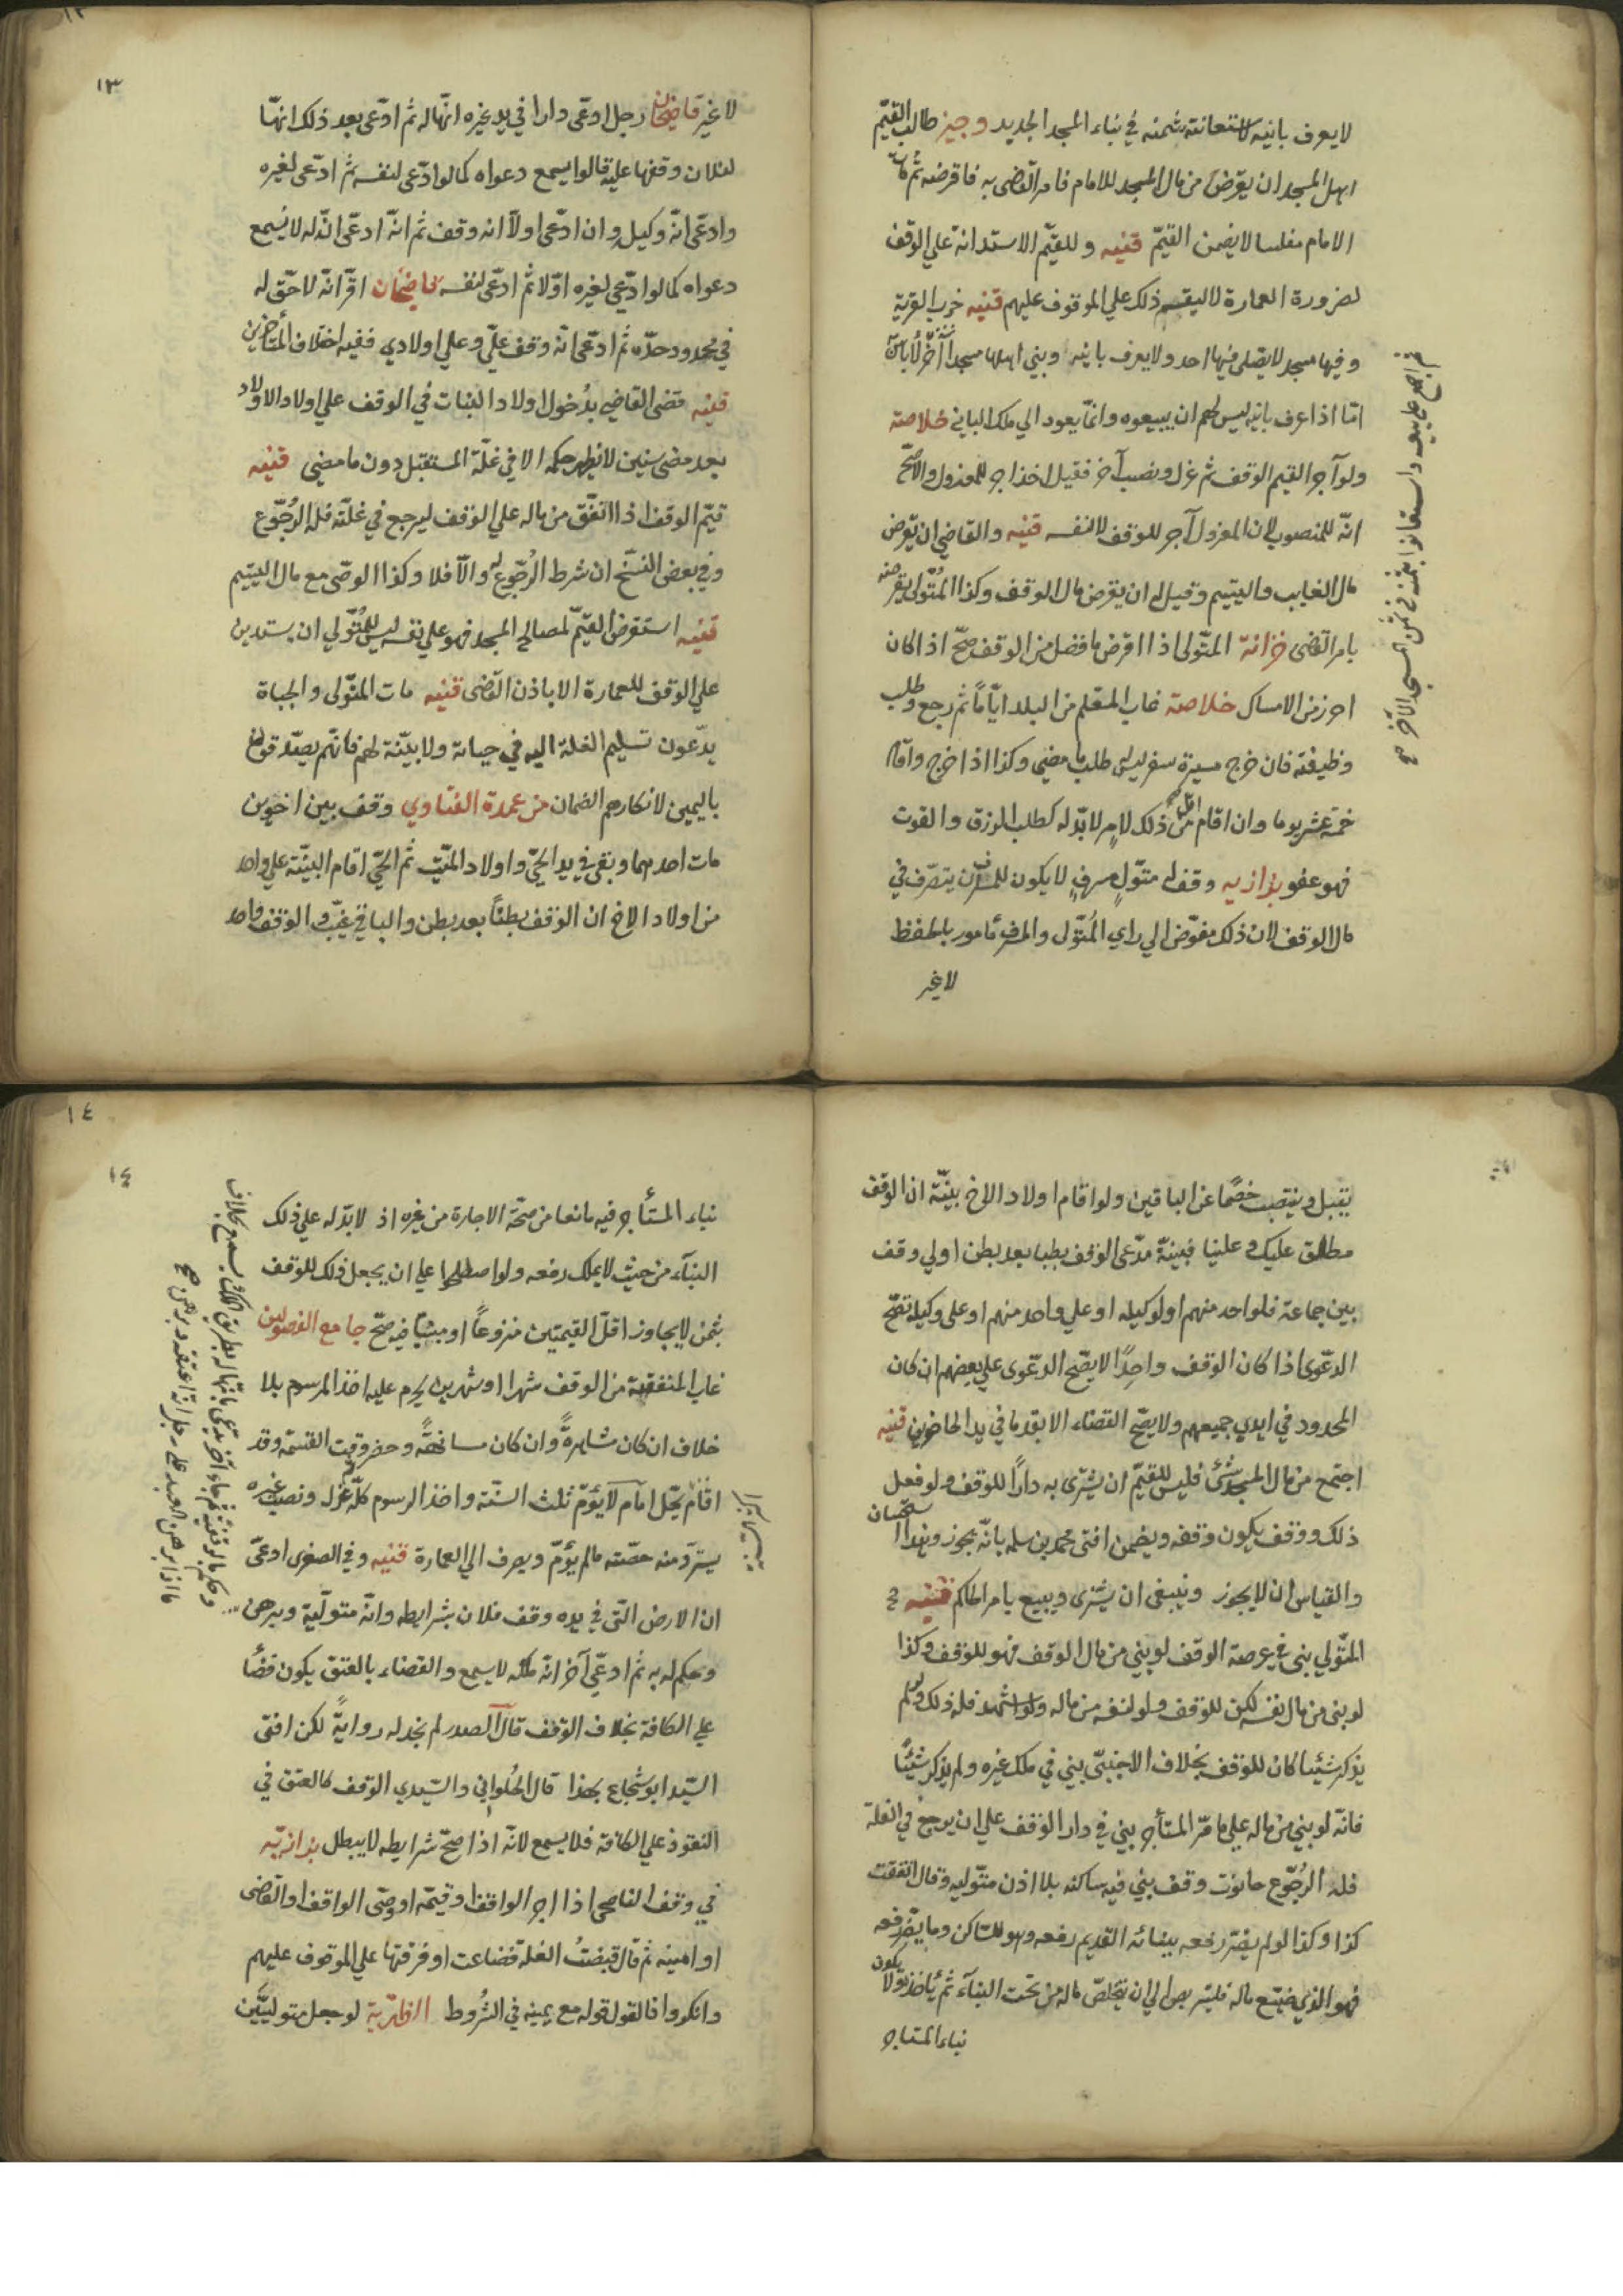 لا يعرف بانيه لاستعانته بثمنه في بناء المسجد الجديد وجيز طالب القيّم
اهل المسجد ان يقرض من مال المسجد للامام فامر القاضي به فاقرضه ثم مات
الامام مفلسا لا يضمن القيّم قنيه وللقيّم الاستدانة علي الوقف
لضرورة العمارة لا ليقسم ذلك علي الموقوف عليهم قنيه خرب القرية
وفيها مسجد لا يصلي فيها احد ولا يعرف بانيه وبني اهلها مسجدا آخر لا باس
امّا اذا عرف بانيه ليس لهم ان يبيعوه وانّما يعود الي ملك الباني خلاصة
ولو آجر القيم الوقف ثم عزل ونصب آخر فقيل اخذ اجر للمعزول والاصحّ
انّه للمنصوب لان المعزول آجر للوقف لا لنفسه قنيه والقاضي ان يقرض
مال الغايب واليتيم وقيل له ان يقرض مال الوقف وكذا المتولي يقرضه
بامر القاضي خزانة المتولي اذا اقرض ما فضل من الوقف صحّ اذا كان
احرز من الامساك خلاصة غاب المتعلم من البلد ايّاماً ثم رجع وطلب
وظيفته فان خرج مسيرة سفر ليس طلب ما مضي وكذا اذا خرج واقام
خمسة عشر يوما وان اقام اقل من ذلك لامر لا بدّ له كطلب الرزق والقوت
فهو عفو بزازيه وقف له متولّ ومشرف لا يكون للمشرف ان يتصرّف في
مال الوقف لان ذلك مفوّض الي راي المتولّ والمشرف مأمور بالحفظ
لا غير
ثم اجمع علي بيعه واستعانوا بثمنه في ثمن المسجد الآخر صح
١٣
١٣
لا غير قاضيخان رجل ادعّي دارا في يد غيره انّها له ثم ادّعي بعد ذلك انهّا
لفلان وقفها عليه قالوا يسمع دعواه كما لو ادّعي لنفسه ثم ادّعي لغيره
وادعّي انّه وكيل وان ادّعي اولاً انه وقف ثم انّه ادعّي انّه له لا يُسمع
دعواه كما لو ادعّي لغيره اوّلا ثم ادعّي لنفسه قاضيخان اقرّ انّه لا حقّ له
في محدود حدّه ثم ادعّي انّه وقف عليّ وعلي اولادي ففيه اختلاف المتأخرين
قنيه قضي القاضي بدُخول اولاد البنات في الوقف علي اولاد الاولاد
بعد مضي سنين لا يظهر حكمه الا في غلّة المستقبل دون ما مضي قنيه
قيّم الوقف اذا انفق من ماله علي الوقف ليرجع في غلّته فله الرُجُوع
وفي بعض النسَخ ان شرط الرُجُوع له والاّ فلا وكذا الوصي مع مال اليتيم
قنيه استقرض القيّم لمصالح المسجد فهو علي نفسه ليس للمُتولي ان يستدين
علي الوقف للعمارة الا باذن القاضي قنيه مات المتولي والجباة
يدّعون تسليم الغلة اليه في حياته ولا بيّنة لهم فانهّم يصدّق قولهم
باليمين لانكارهم الضمان من عمدة الفتاوي وقف بين اخوين
مات احدهما وبقي في يد الحيّ واولاد الميّت ثم الحيّ اقام البيّنة علي واحد
من اولاد الاخ ان الوقف بطناً بعد بطن والباقي غيّب والوقف واحد
يقبل وينتصب خصمًا عن الباقين ولو اقام اولاد الاخ بيّنة ان الوقف
مطلق عليك وعلينا فبينّة مدّعي الوقف بطنا بعد بطن اولي وقف
بين جماعة فلواحد منهم او لوكيله او علي واحد منهم او علي وكيله تصّح
الدعّوي اذا كان الوقف واحِدًا لا يصّح الدعّوي علي بعضهم ان كان
المحدود في ايدي جميعهم ولا يصّح القضاء الا بقدر ما في يد الحاضرين قنيه
اجتمع من مال المسجد شئ فليس للقيّم ان يشتري به دارًا للوقف ولو فعل
ذلك ووقف يكون وقفه ويضمن افتي محمد بن سلمه بانّه يجوز وهذا استحسان
والقياس ان لا يجوز وينبغي ان يشتري ويبيع بامر الحاكم قنيه
المتّولي بني في عرصة الوقف لو بني من مال الوقف فهو للوقف وكذا
لو بني من مال نفسه لكن للوقف ولو لنفسه من ماله ولو اشهد فله ذلك ولو لم
يذكر شيئا كان للوقف بخلاف الاجنبيّ بني في ملك غيره ولم يذكر شيئًا
فانّه لو بني من ماله علي ما مرّ المستأجر بني في دار الوقف علي ان يرجع في الغلة
فله الرُجُوع حانوت وقف بني فيه ساكنه بلا اذن متّوليه وقال انفقت
كذا وكذا لو لم يضرّ رفعه ببنائه القديم رفعه وهو للسّاكن وما يضرّ رفعه
فهو الذي ضيّع ماله فليتربص الي ان يتخلصّ ماله من تحت البنآء ثم يأخذ ولا يكون
بناء المستاجر
١٤
١٤
بناء المستأجر فيه مانعا من صحّة الاجارة من غيره اذ لا بدّ له علي ذلك
البنآء من حيث لا يملك رفعه ولو اصطلحوا علي ان يجعل ذلك للوقف
بثمن لا يجاوز اقلّ القيمتين منزوعاً او مبنيّا فيه صحّ جامع الفصولين
غاب المتفقهة من الوقف شهرا او شهرين يحرم عليه اخذ المرسوم بلا
خلاف ان كان مشاهرةً وان كان مسانهةً وحضر وقت القسمة وقد
اقام يحّل امام لا يؤمّ ثلث السّنة واخذ الرسوم كلّه ثم عُزل ونصب غيره
يستردّ منه حصّته ما لم يؤمّ ويصرف الي العمارة قنيه وفي الصغري ادعّي
ان الارض التّي في يده وقف فلان بشرايطه وانّه متولّيه وبرهن
وحكم له به ثم ادعّي آخر انّه ملكه لا يسمع والقضاء بالعتق يكون قضأ
علي الكافة بخلاف الوقف قال الصدر لم نجد له روايةً لكن افتي
السّيد ابو شجاع بهذا قال الحُلواني والسّعدي الوقف كالعتق في
النفوذ علي الكافة فلا يسمع لانّه اذا صحّ شرايطه لا يبطل بزازيّه
في وقف الناصحي اذا اجر الواقف او قيّمه او وصّي الواقف او القاضي
او امينه ثم قال قبضتُ الغلة فضاعت او فرقتها علي الموقوف عليهم
وانكروا فالقول قوله مع يمينه في الشُروط الظهيريّة لو جعل متوليَّين